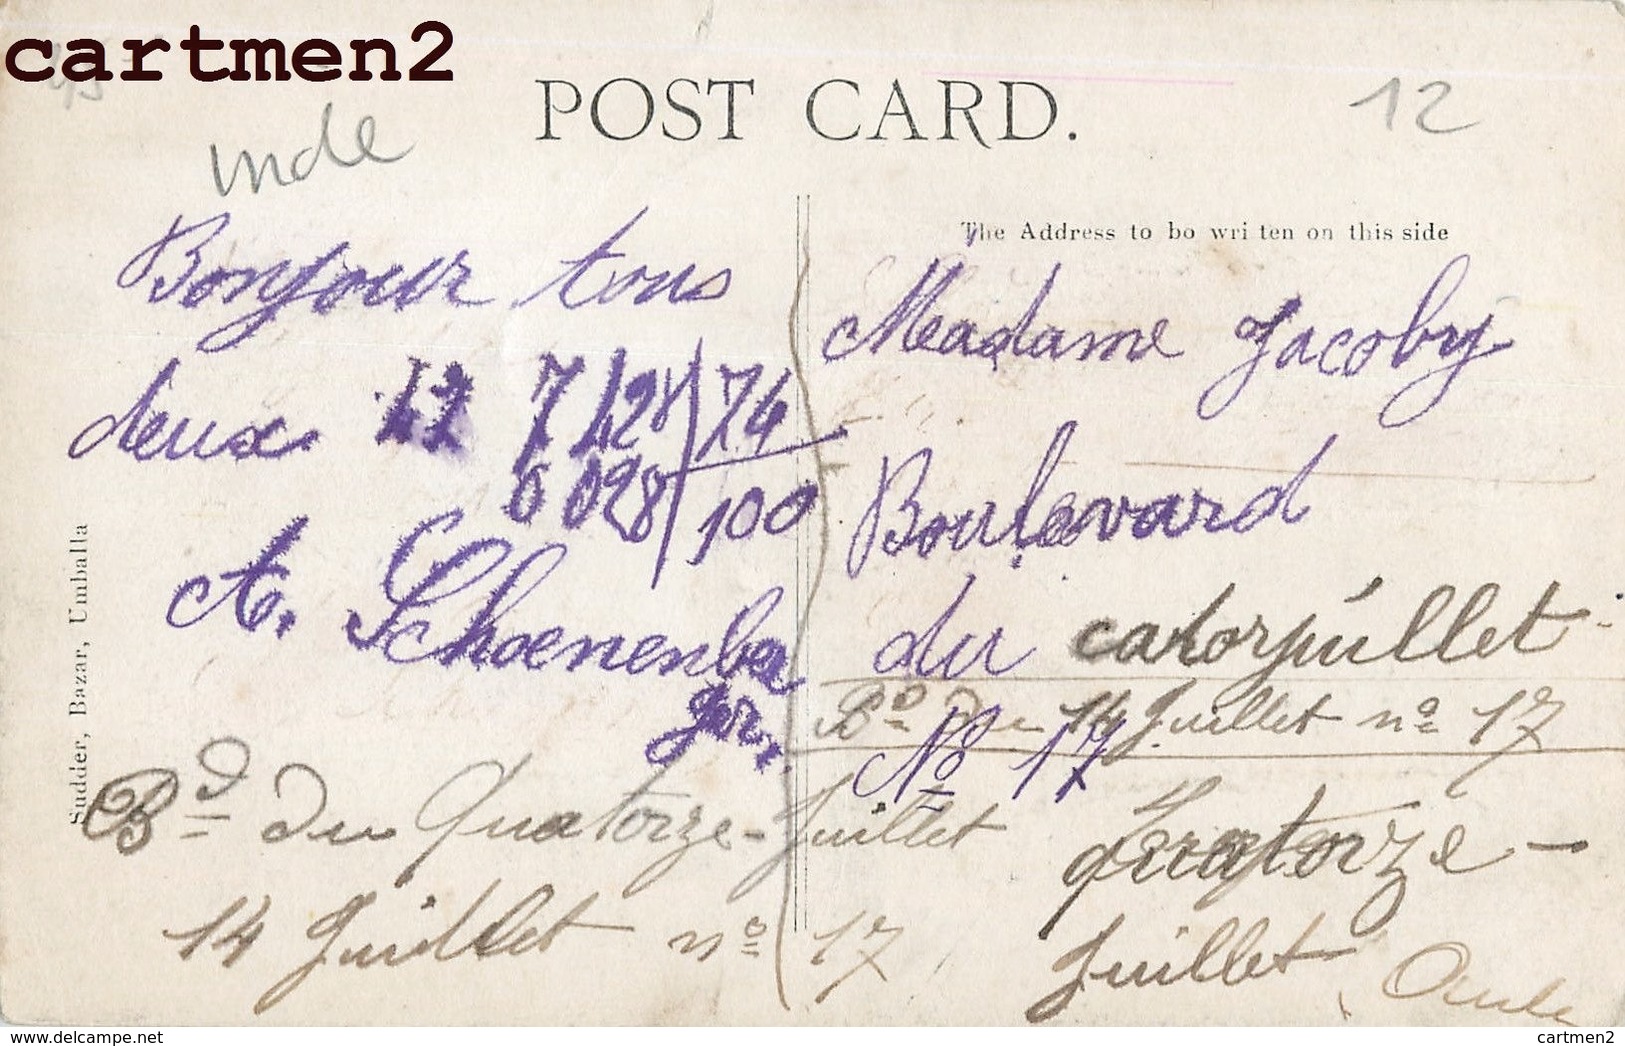 cartmen2
POST CARD.
12
Inde
The Address to be wri ten on this side
Bonjour tous
deux 12 7 128 / 74
6 028 / 100
A. Schoenenba
ger.
Madame Jacoby
Boulevard
du catorjuillet
Bd du 14 Juillet no 17
No 17
Bd du Quatorze-Juillet
14 Juillet no 17
Quatorze-
Juillet
Sudder, Bazar, Umballa
cartmen2